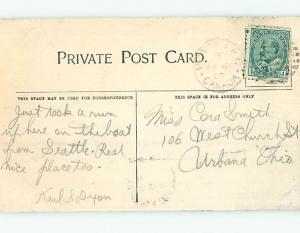 PRIVATE POST CARD.
THIS SPACE MAY BE USED FOR CORRESPONDENCE
THIS SPACE IS FOR ADDRESS ONLY
Just took a run
up here on the boat
from Seattle. Real
nice place too.
Karl S Dixon
Miss Cora Smith
106 West Church St
Urbana Ohio